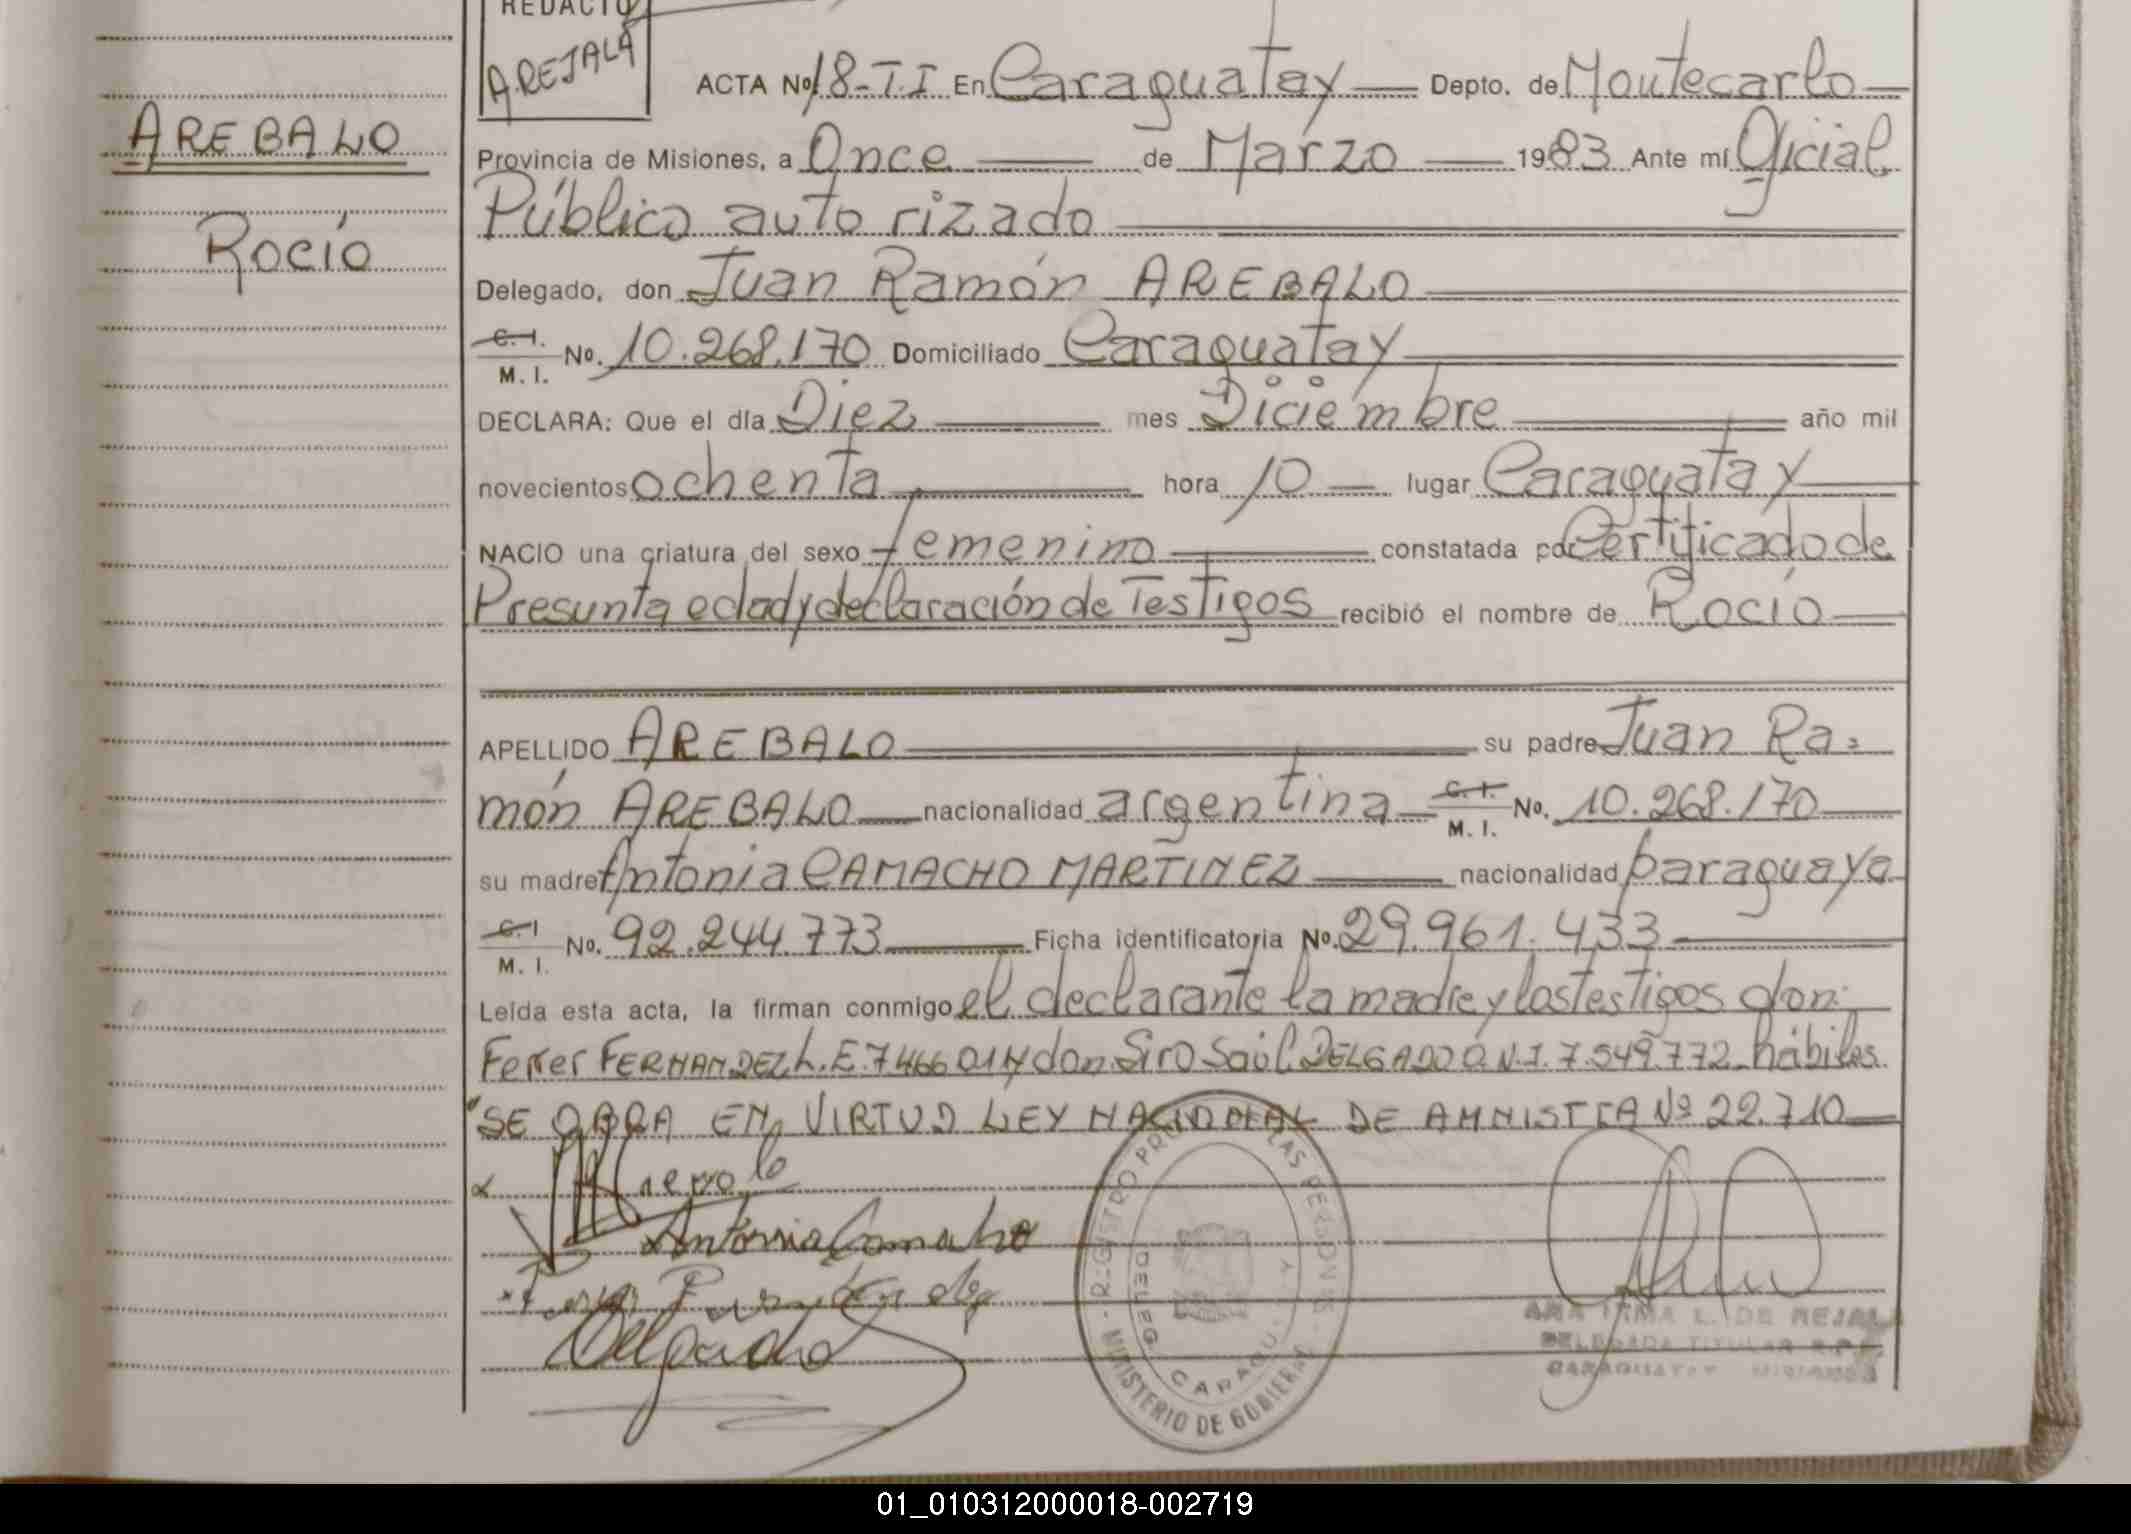 REDACTO
A.REJALA
AREBALO
Rocío
ACTA Nº 18-T.I En Caraguatay Depto. de Montecarlo
Provincia de Misiones, a Once de Marzo 1983 Ante mí Oficial
Público autorizado
Delegado, don Juan Ramón AREBALO
C.I. M.I. No. 10.268.170 Domiciliado Caraguatay
DECLARA: Que el día Diez mes Diciembre año mil
novecientos ochenta hora 10 lugar Caraguatay
NACIO una criatura del sexo femenino constatada por Certificado de
Presunta edad y declaración de Testigos recibió el nombre de Rocío
APELLIDO AREBALO su padre Juan Ra=
món AREBALO nacionalidad argentina C.I. M.I. No. 10.268.170
su madre Antonia CAMACHO MARTINEZ nacionalidad paraguaya
C.I M.I. No. 92.244.773 Ficha identificatoria No. 29.961.433
Leída esta acta, la firman conmigo el declarante la madre y los testigos don:
Ferrer FERNANDEZ L.E. 7466014 don Siro Saúl DELGADO D.N.I. 7.549.772 hábiles.
SE OBRA EN VIRTUD LEY NACIONAL DE AMNISTIA Nº 22.710
Antonia Camacho
Delgado
REGISTRO PROV. DE LAS PERSONAS
DELEG. CARAGU. Y
MINISTERIO DE GOBIERNO
ANA IRMA L. DE REJALA
DELEGADA TITULAR R.P.
CARAGUATAY MISIONES
01_010312000018-002719